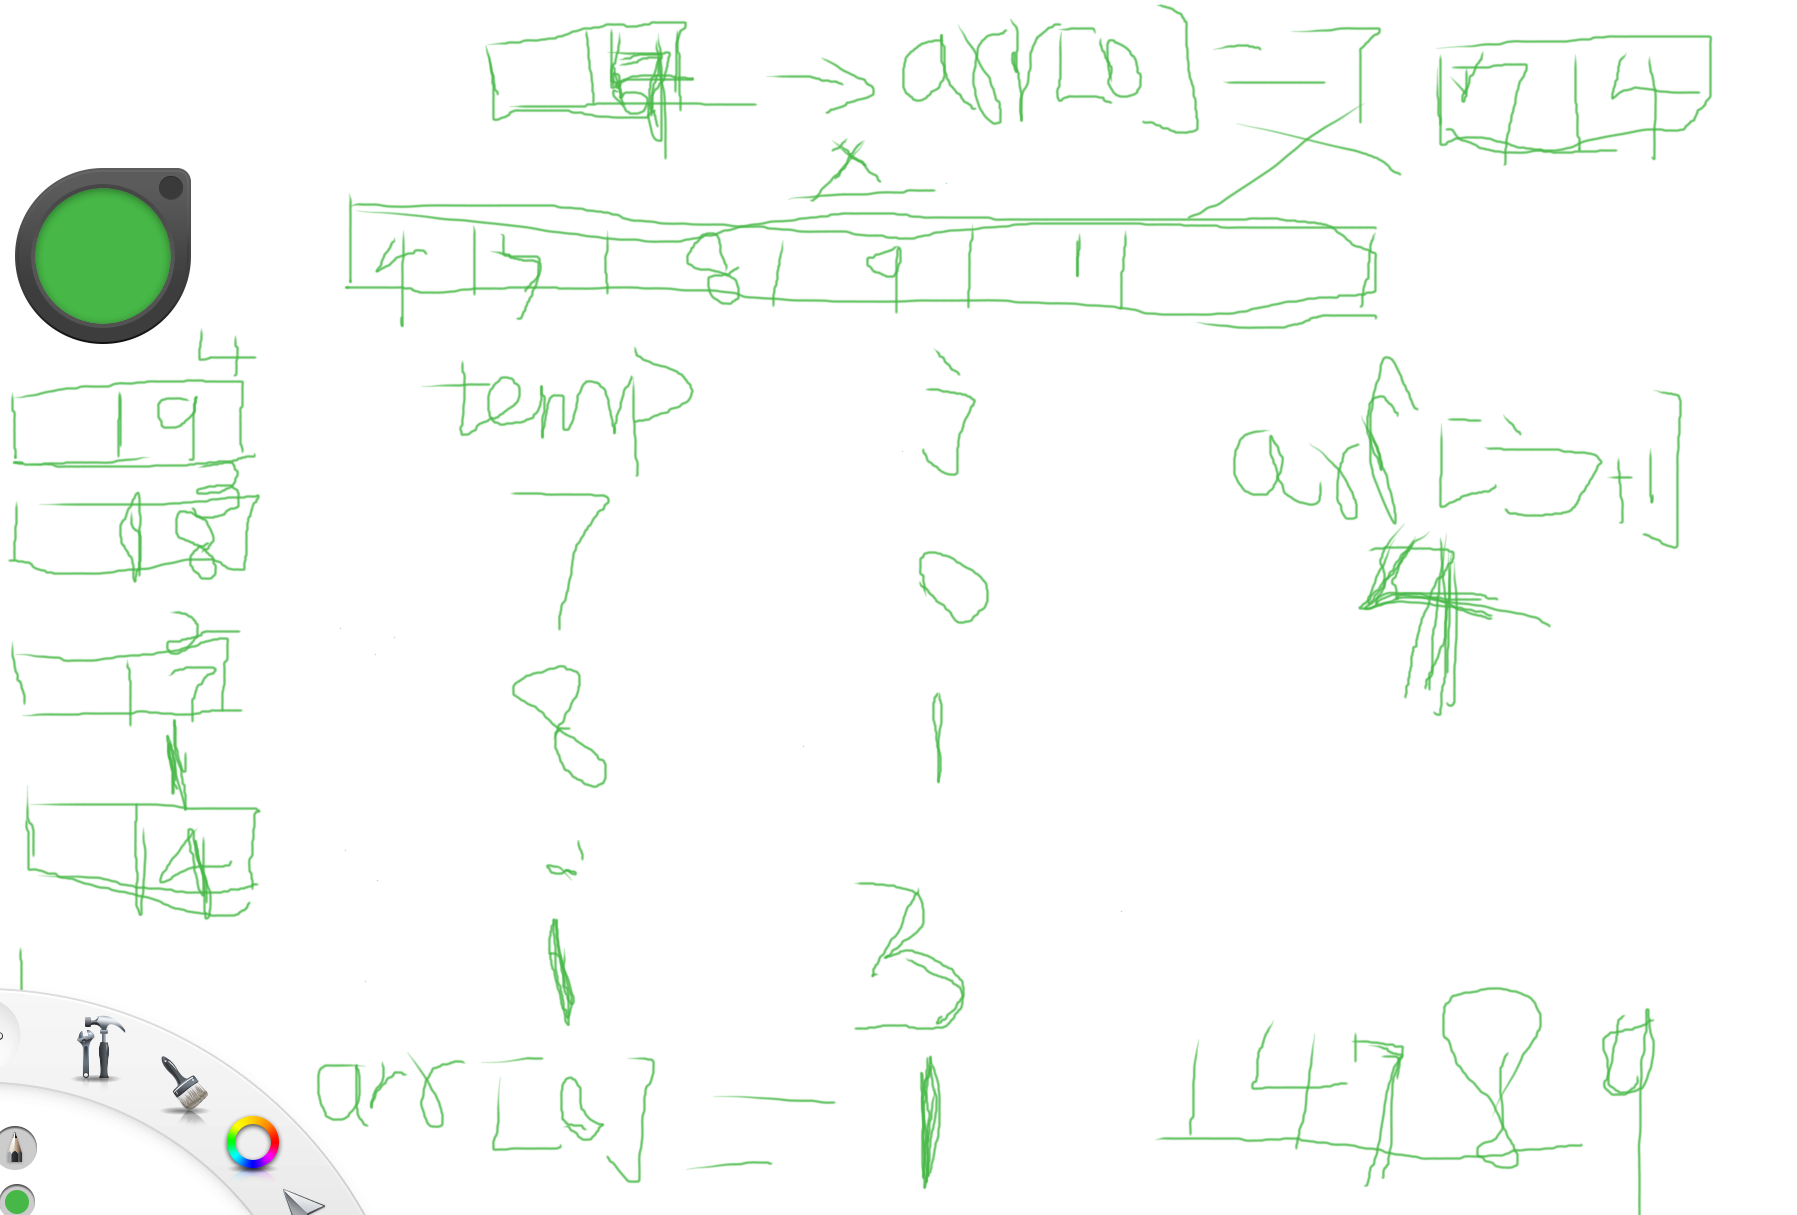 → arr[0] = 7 4
x
4 7 8 9 1
4
9
3
8
2
7
1
4
temp j arr[j+1]
7 0 4
8 1
i
1 3
arr[0] = 1
1 4 7 8 9